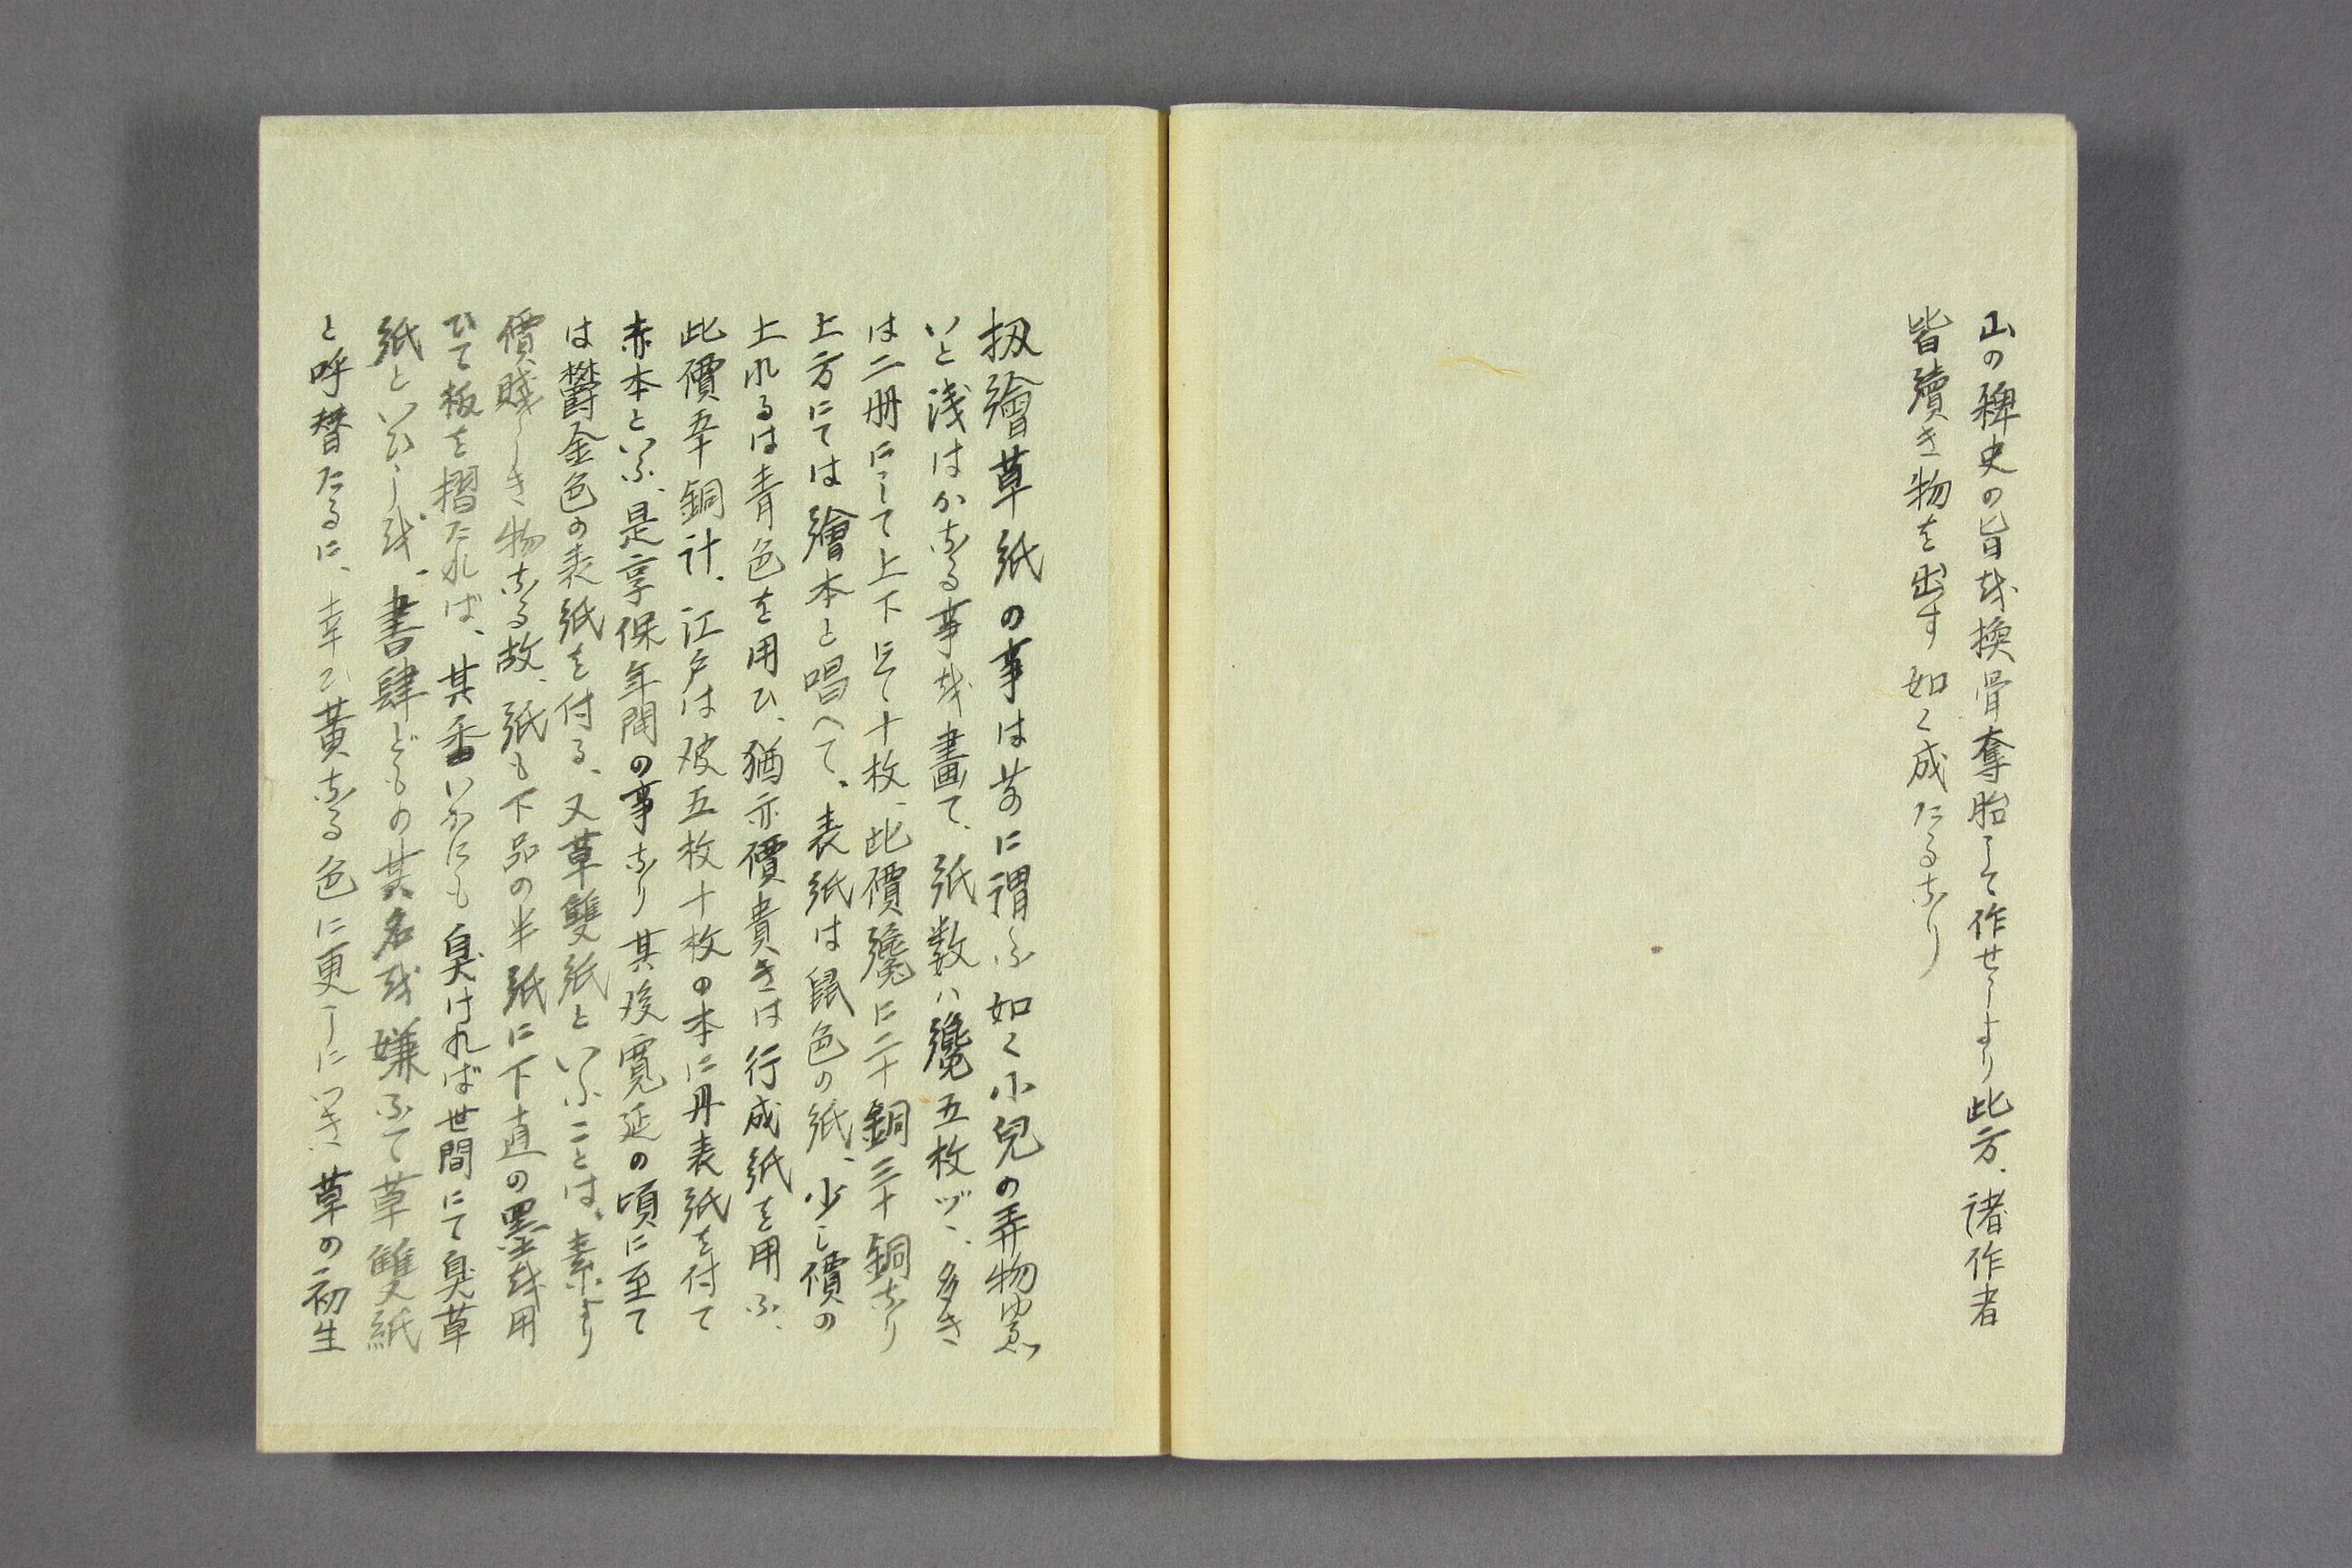 山の稗史の旨を換骨奪胎して作せしより此方、諸作者
皆續き物を出す如く成たるなり
扨繪草紙の事は前に謂ふ如く小兒の弄物ゆゑ
いと淺はかなる事を畫て、紙数ハ纔五枚ヅヽ、多き
は二册にして上下にて十枚、此價纔に二十銅三十銅なり
上方にては繪本と唱へて、表紙は鼠色の紙、少し價の
上れるは青色を用ひ、猶亦價貴きは行成紙を用ふ、
此價五十銅計、江戸は后五枚十枚の本に丹表紙を付て
赤本といふ、是享保年間の事なり其後寛延の頃に至て
は欝金色の表紙を付る、又草雙紙といふことは、素より
價賤しき物なる故、紙も下品の半紙に下直の墨を用
ひて板を摺たれば、其香いかにも臭ければ世間にて臭草
紙といひしを、書肆どもの其名を嫌ふて草雙紙
と呼替たるに、幸ひ黄なる色に更しにつき、草の初生